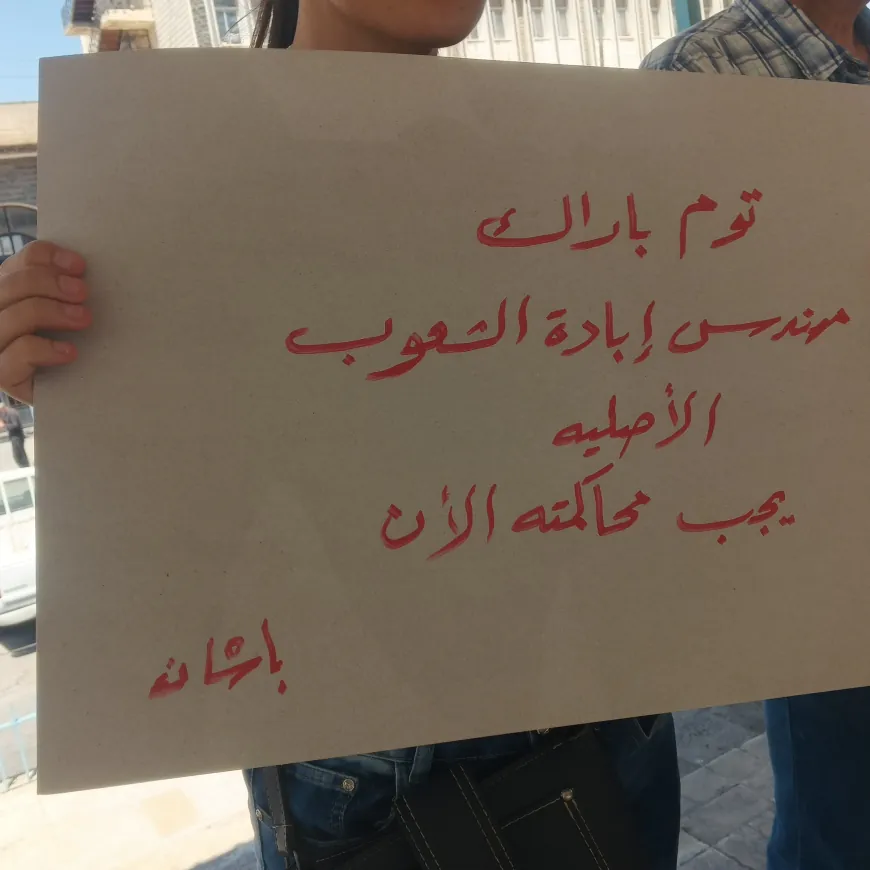 توم باراك
مهندس إبادة الشعوب
الأصليه
يجب محاكمته الأن
باشان